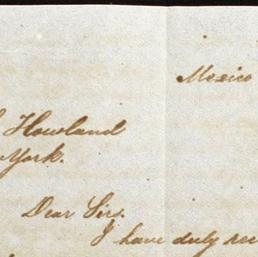 Mexico
Howland
York.
Dear Sir.
I have duly rec